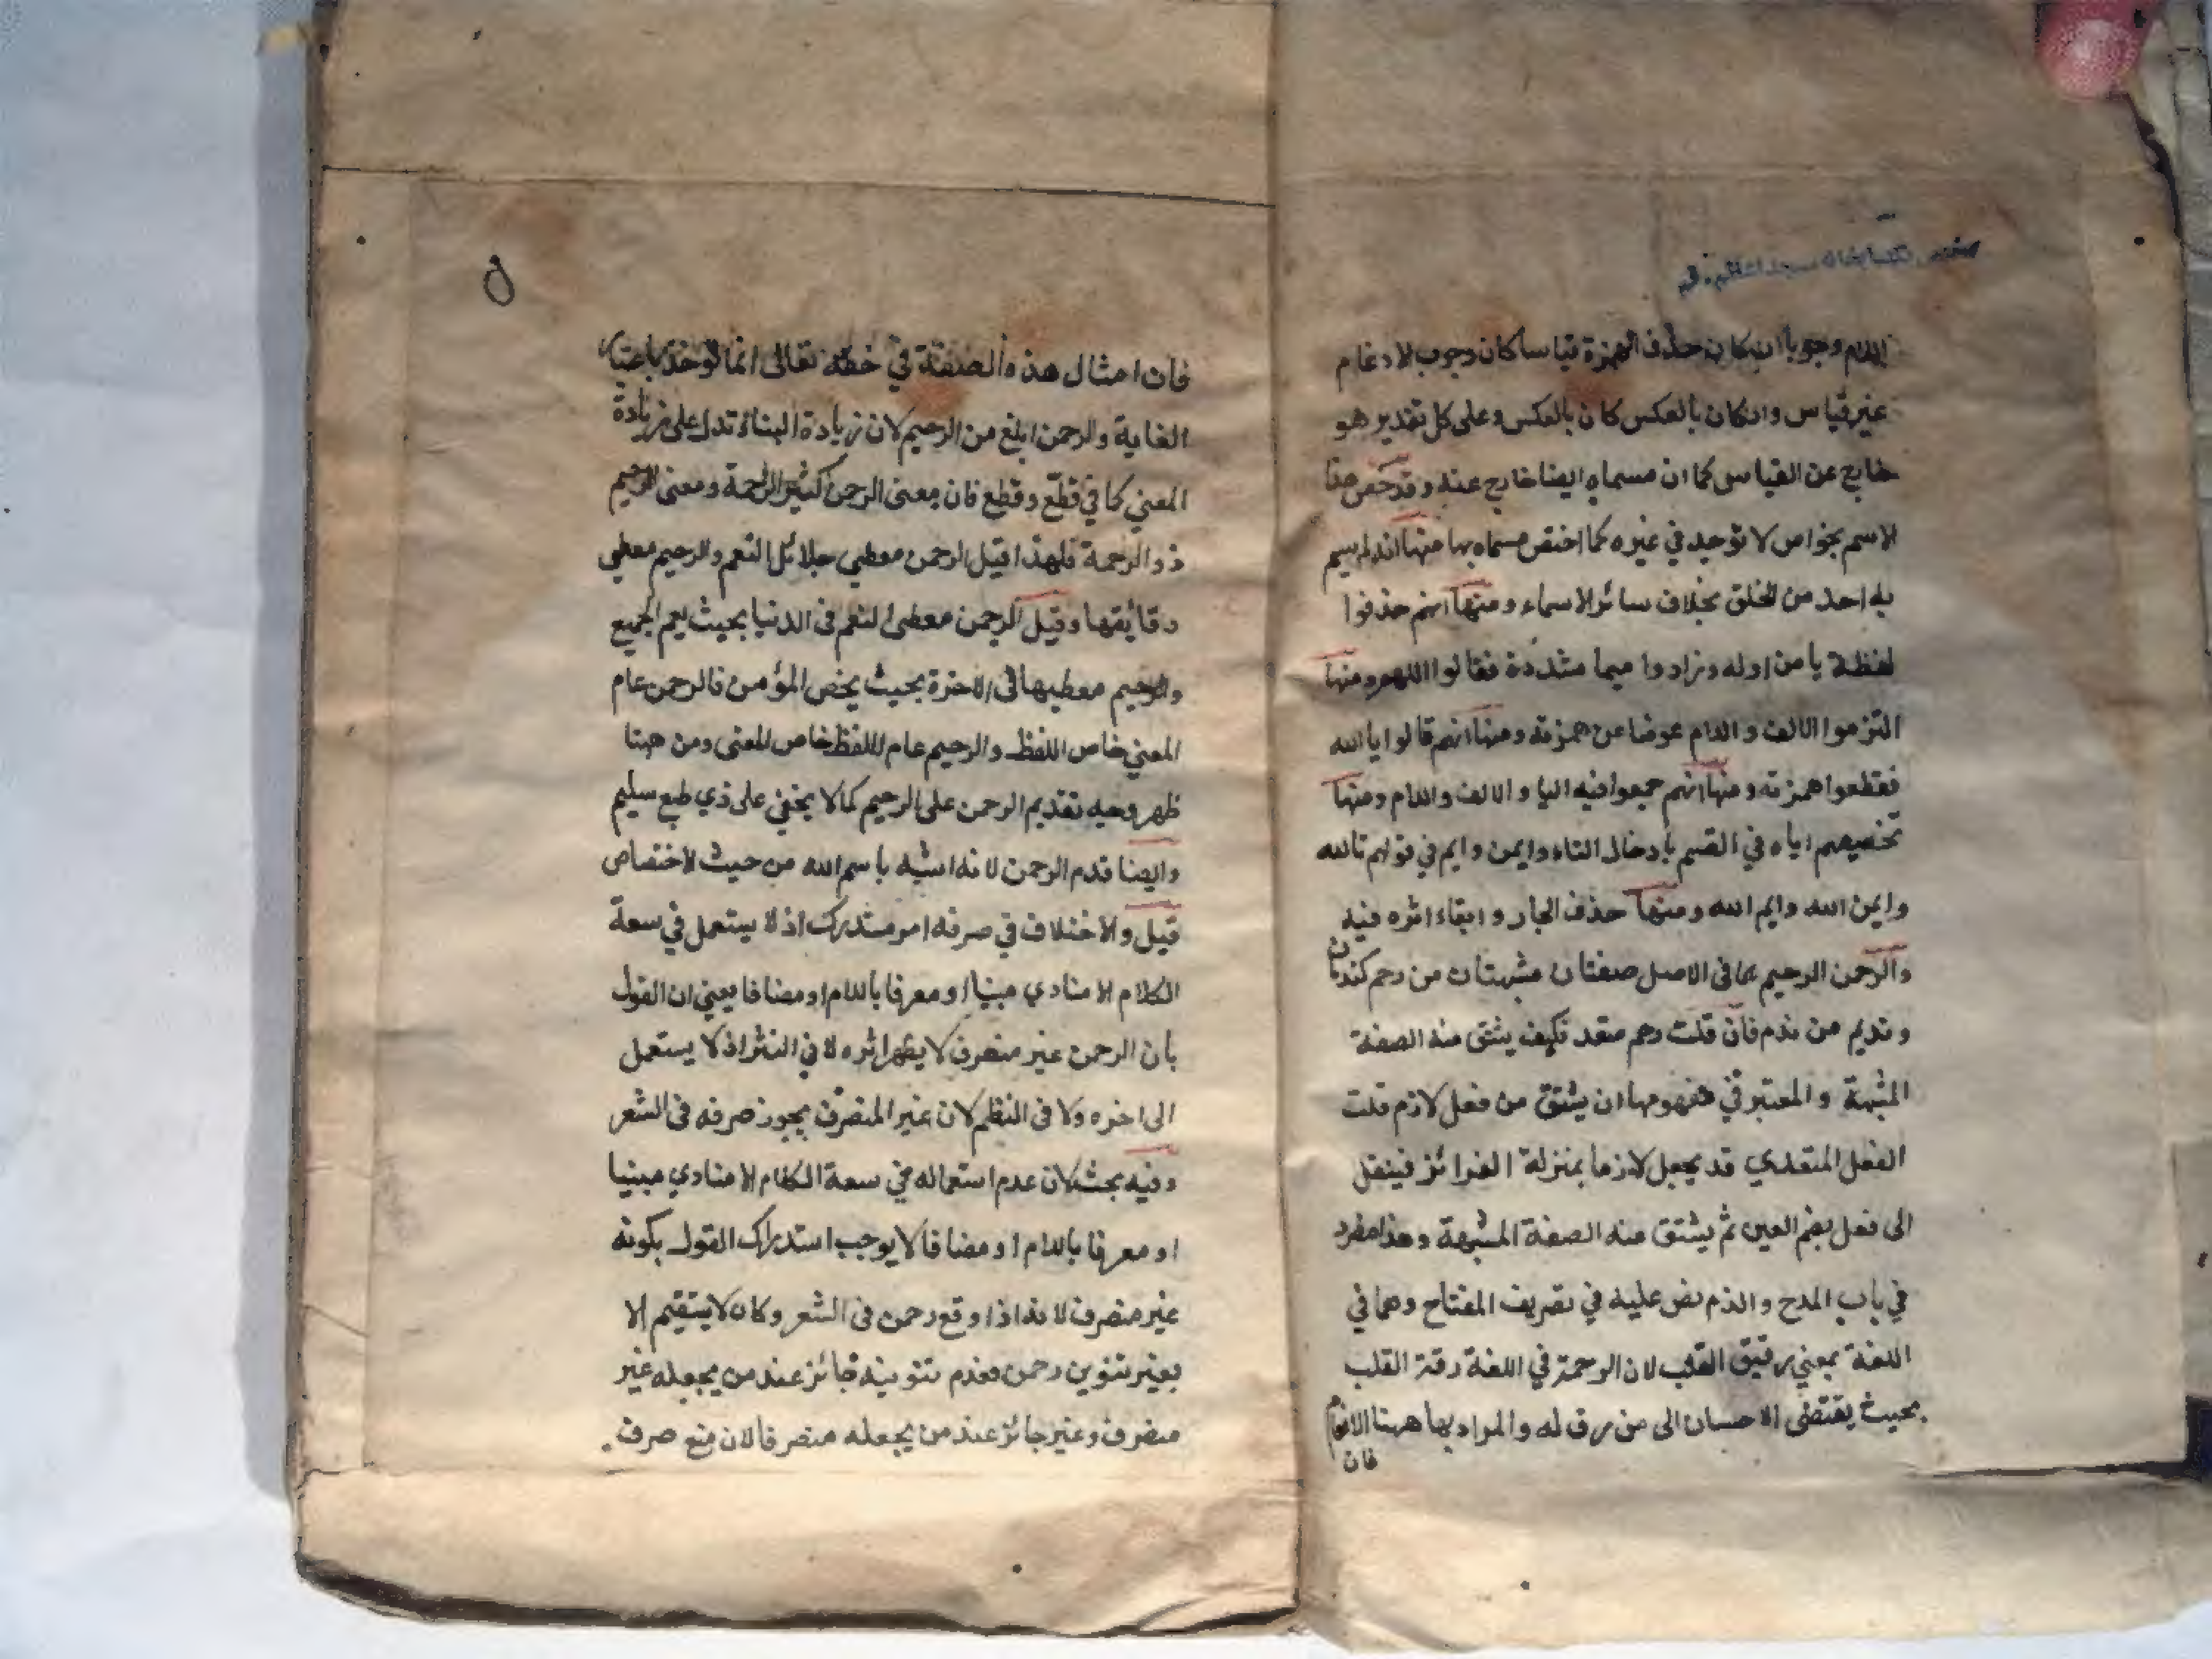 اللام وجوبا ان كان حذف الهمزة قياسا كان وجوب الادغام
غير قياس وان كان بالعكس كان بالعكس وعلى كل تقدير هو
خارج عن القياس كما ان مسماه ايضا خارج عنه وقد خص هذا
الاسم بخواص لا توجد في غيره كما اختص مسماه بها منها انه لم يسم
به احد من الخلق بخلاف سائر الاسماء ومنها انهم حذفوا
لفظة يا من اوله وزادوا ميما مشددة فقالوا اللهم ومنها
التزموا الالف واللام عوضا عن همزته ومنها انهم قالوا يا الله
فقطعوا همزته ومنها انهم جمعوا فيه اليا والالف واللام ومنها
تخصيصهم اياه في القسم بادخال التاء وايمن وايم في قولهم تالله
وايمن الله وايم الله ومنها حذف الجار وابقاء اثره فيه
والرحمن الرحيم هما في الاصل صفتان مشبهتان من رحم كندمان
ونديم من ندم فان قلت رحم متعد فكيف يشتق منه الصفة
المشبهة والمعتبر في مفهومها ان يشتق من فعل لازم قلت
الفعل المتعدي قد يجعل لازما بمنزلة الغرائز فينقل
الى فعل بضم العين ثم يشتق منه الصفة المشبهة وهذا مطرد
في باب المدح والذم نص عليه في تصريف المفتاح وهما في
اللغة بمعنى رقيق القلب لان الرحمة في اللغة رقة القلب
بحيث يقتضى الاحسان الى من رق له والمراد بها ههنا الانعام
فان
٥
فان امثال هذه الصفة في حقه تعالى انما توخذ باعتبار
الغاية والرحمن ابلغ من الرحيم لان زيادة البناء تدل على زيادة
المعني كما في قطع وقطع فان معنى الرحمن كثير الرحمة ومعنى الرحيم
ذو الرحمة فلهذا قيل الرحمن معطي جلائل النعم والرحيم معطي
دقائقها وقيل الرحمن معطى النعم فى الدنيا بحيث يعم الجميع
والرحيم معطيها فى الاخرة بحيث يخص المؤمن فالرحمن عام
المعني خاص اللفظ والرحيم عام اللفظ خاص المعنى ومن ههنا
ظهر وجه تقديم الرحمن على الرحيم كما لا يخفى على ذي طبع سليم
وايضا قدم الرحمن لانه اشبه باسم الله من حيث الاختصاص
قيل والاختلاف في صرفه امر مستدرك اذ لا يستعمل في سعة
الكلام الا منادي مبنيا او معرفا باللام او مضافا يعني ان القول
بان الرحمن غير منصرف لا يظهر اثره لا في النثر اذ لا يستعمل
الى اخره ولا فى النظم لان غير المنصرف يجوز صرفه فى الشعر
وفيه بحث لان عدم استعماله في سعة الكلام الا منادي مبنيا
او معرفا باللام او مضافا لا يوجب استدراك القول بكونه
غير منصرف لانه اذا وقع رحمن فى الشعر وكان لا يستقيم إلا
بغير تنوين رحمن فعدم تنوينه جائز عند من يجعله غير
منصرف وغير جائز عند من يجعله منصرفا لان منع صرف